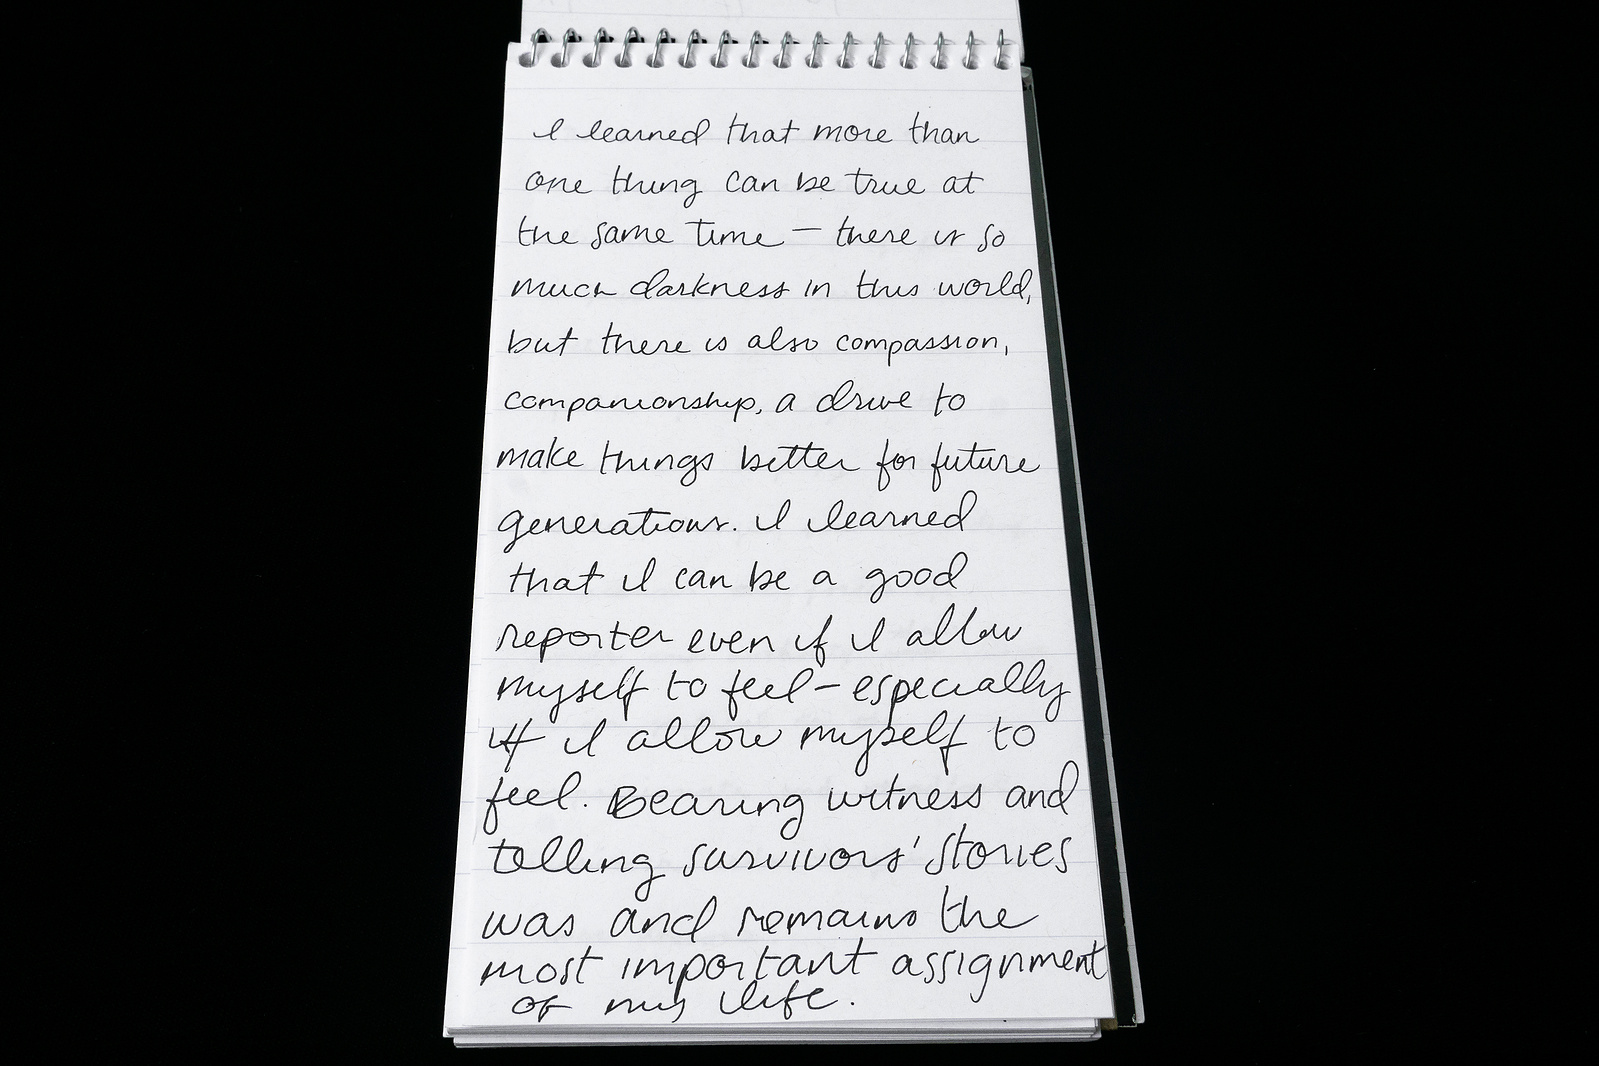 I learned that more than
one thing can be true at
the same time — there is so
much darkness in this world,
but there is also compassion,
companionship, a drive to
make things better for future
generations. I learned
that I can be a good
reporter even if I allow
myself to feel – especially
if I allow myself to
feel. Bearing witness and
telling survivors' stories
was and remains the
most important assignment
of my life.